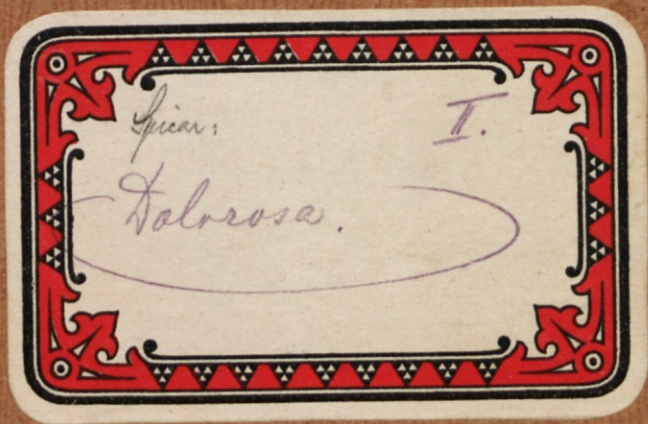 Spicar: II.
Dolorosa.